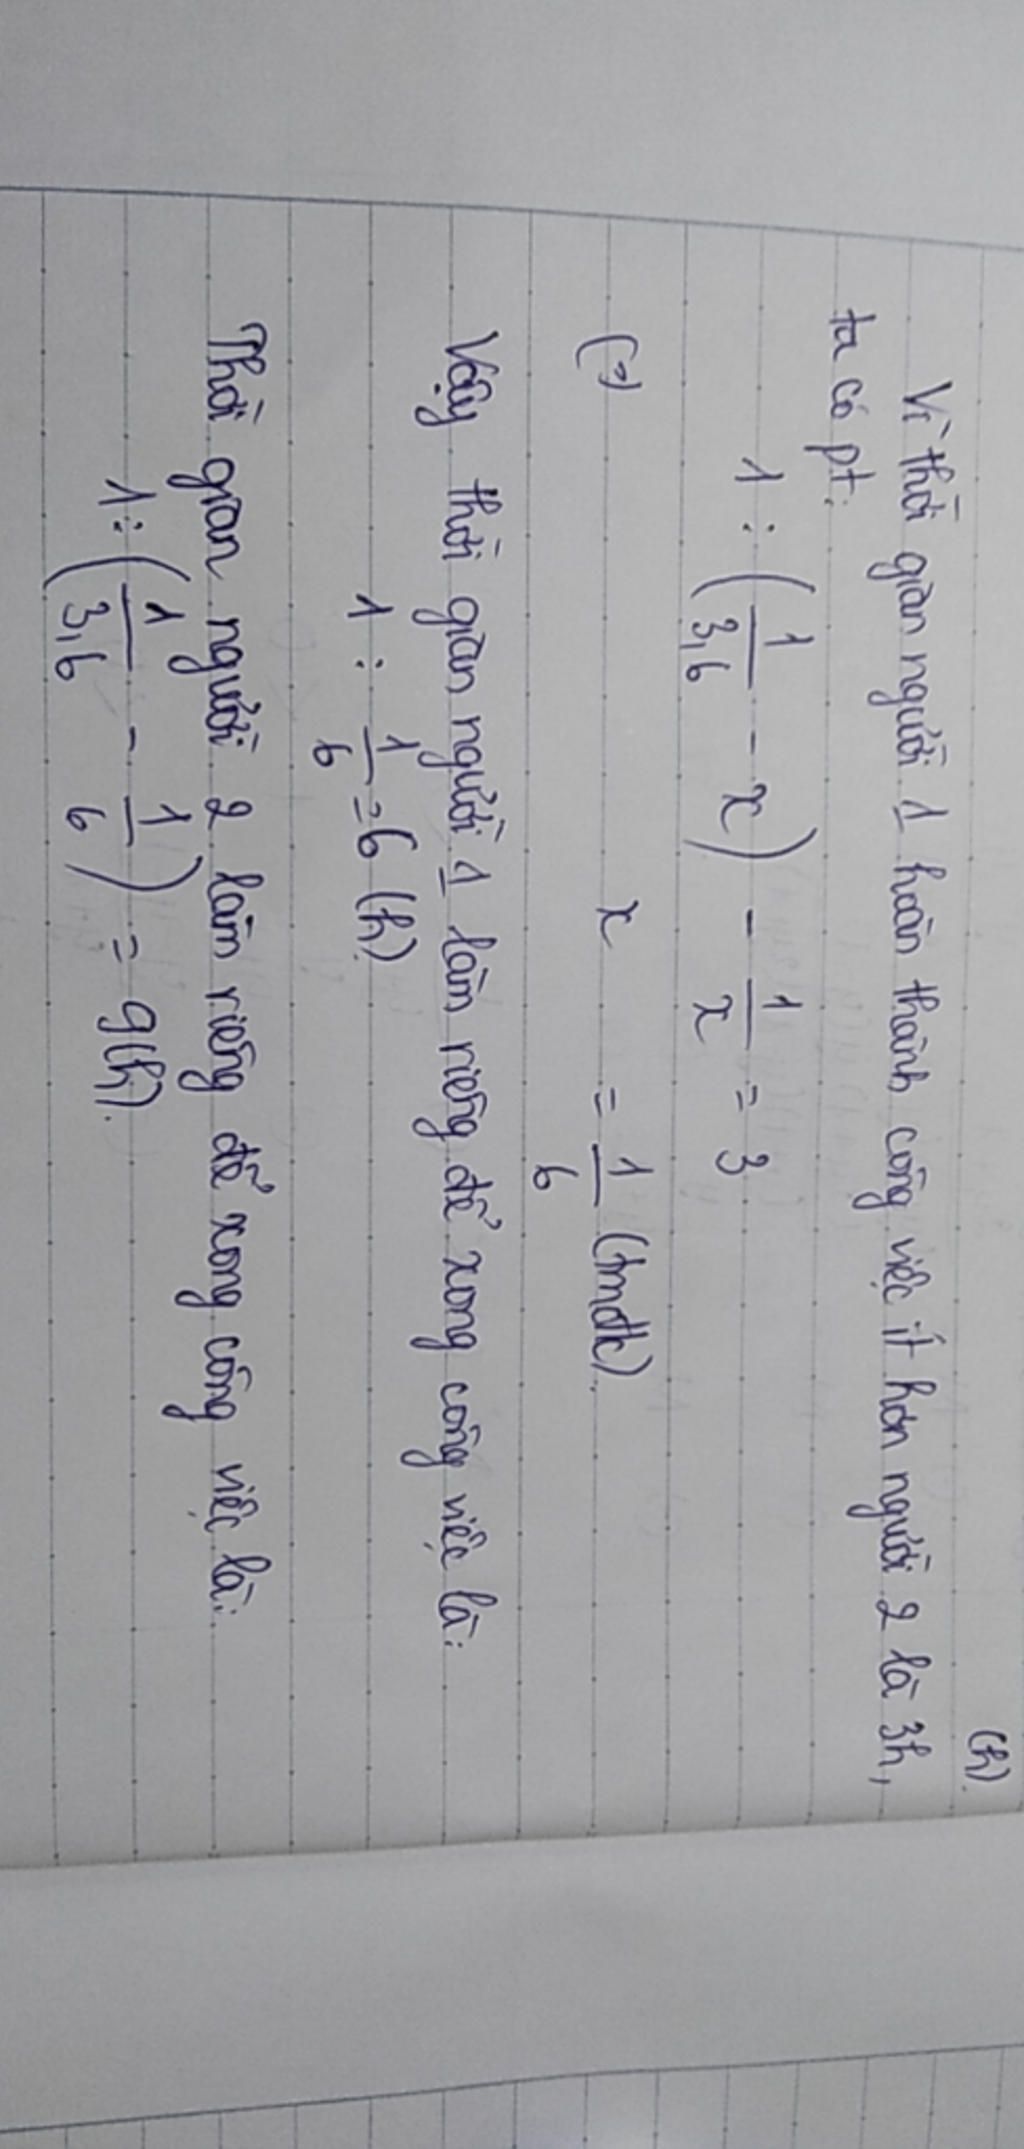 (h).
Vì thời gian người 1 hoàn thành công việc ít hơn người 2 là 3h,
ta có pt:
1 : (1/3,6 - x) - 1/x = 3
(=) x = 1/6 (tmđk).
Vậy thời gian người 1 làm riêng để xong công việc là:
1 : 1/6 = 6 (h)
Thời gian người 2 làm riêng để xong công việc là:
1 : (1/3,6 - 1/6) = 9(h).